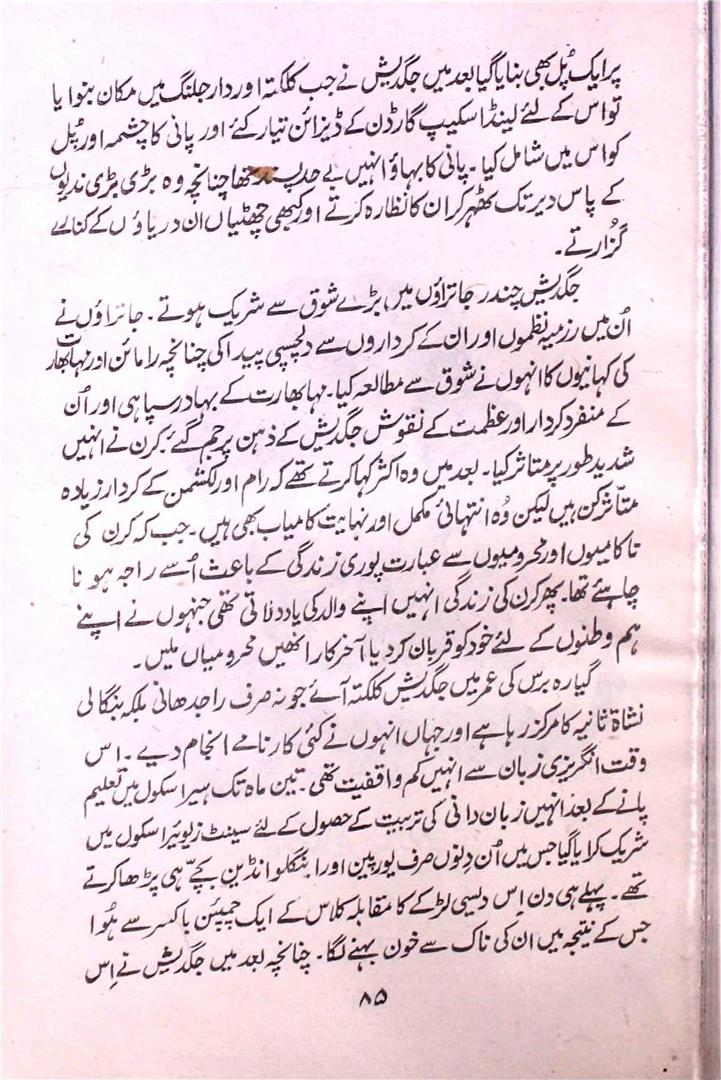 پر ایک پُل بھی بنایا گیا بعد میں جگدیش نے جب کلکتہ اور دارجلنگ میں مکان بنوایا
تو اس کے لئے لینڈ اسکیپ گارڈن کے ڈیزائن تیار کئے اور پانی کا چشمہ اور پُل
کو اس میں شامل کیا۔ پانی کا بہاؤ انہیں بے حد پسند تھا چنانچہ وہ بڑی بڑی ندیوں
کے پاس دیر تک ٹھہر کر ان کا نظارہ کرتے اور کبھی چھٹیاں ان دریاؤں کے کنارے
گزارتے۔
جگدیش چندر جاتراؤں میں بڑے شوق سے شریک ہوتے۔ جاتراؤں نے
اُن میں رزمیہ نظموں اور ان کے کرداروں سے دلچسپی پیدا کی چنانچہ رامائن اور مہابھارت
کی کہانیوں کا انہوں نے شوق سے مطالعہ کیا۔ مہابھارت کے بہادر سپاہی اور اُن
کے منفرد کردار اور عظمت کے نقوش جگدیش کے ذہن پر جم گئے۔ کرن نے انہیں
شدید طور پر متاثر کیا۔ بعد میں وہ اکثر کہا کرتے تھے کہ رام اور لکشمن کے کردار زیادہ
متاثر کن ہیں لیکن وُہ انتہائی مکمل اور نہایت کامیاب بھی ہیں۔ جب کہ کرن کی
ناکامیوں اور محرومیوں سے عبارت پوری زندگی کے باعث اُسے راجہ ہونا
چاہئے تھا۔ پھر کرن کی زندگی انہیں اپنے والد کی یاد دلاتی تھی جنہوں نے اپنے
ہم وطنوں کے لئے خود کو قربان کر دیا آخر کار انھیں محرومیاں ملیں۔
گیارہ برس کی عمر میں جگدیش کلکتہ آئے جو نہ صرف راجدھانی بلکہ بنگالی
نشاۃ ثانیہ کا مرکز رہا ہے اور جہاں انہوں نے کئی کارنامے انجام دیے۔ اس
وقت انگریزی زبان سے انہیں کم واقفیت تھی۔ تین ماہ تک ہیرا سکول میں تعلیم
پانے کے بعد انہیں زبان دانی کی تربیت کے حصول کے لئے سینٹ زیویئرا سکول میں
شریک کرایا گیا جس میں اُن دِنوں صرف یورپین اور اینگلو انڈین بچّے ہی پڑھا کرتے
تھے۔ پہلے ہی دن اِس دیسی لڑکے کا مقابلہ کلاس کے ایک چمپئن باکسر سے ہُوا
جس کے نتیجہ میں ان کی ناک سے خون بہنے لگا۔ چنانچہ بعد میں جگدیش نے اِس
۸۵